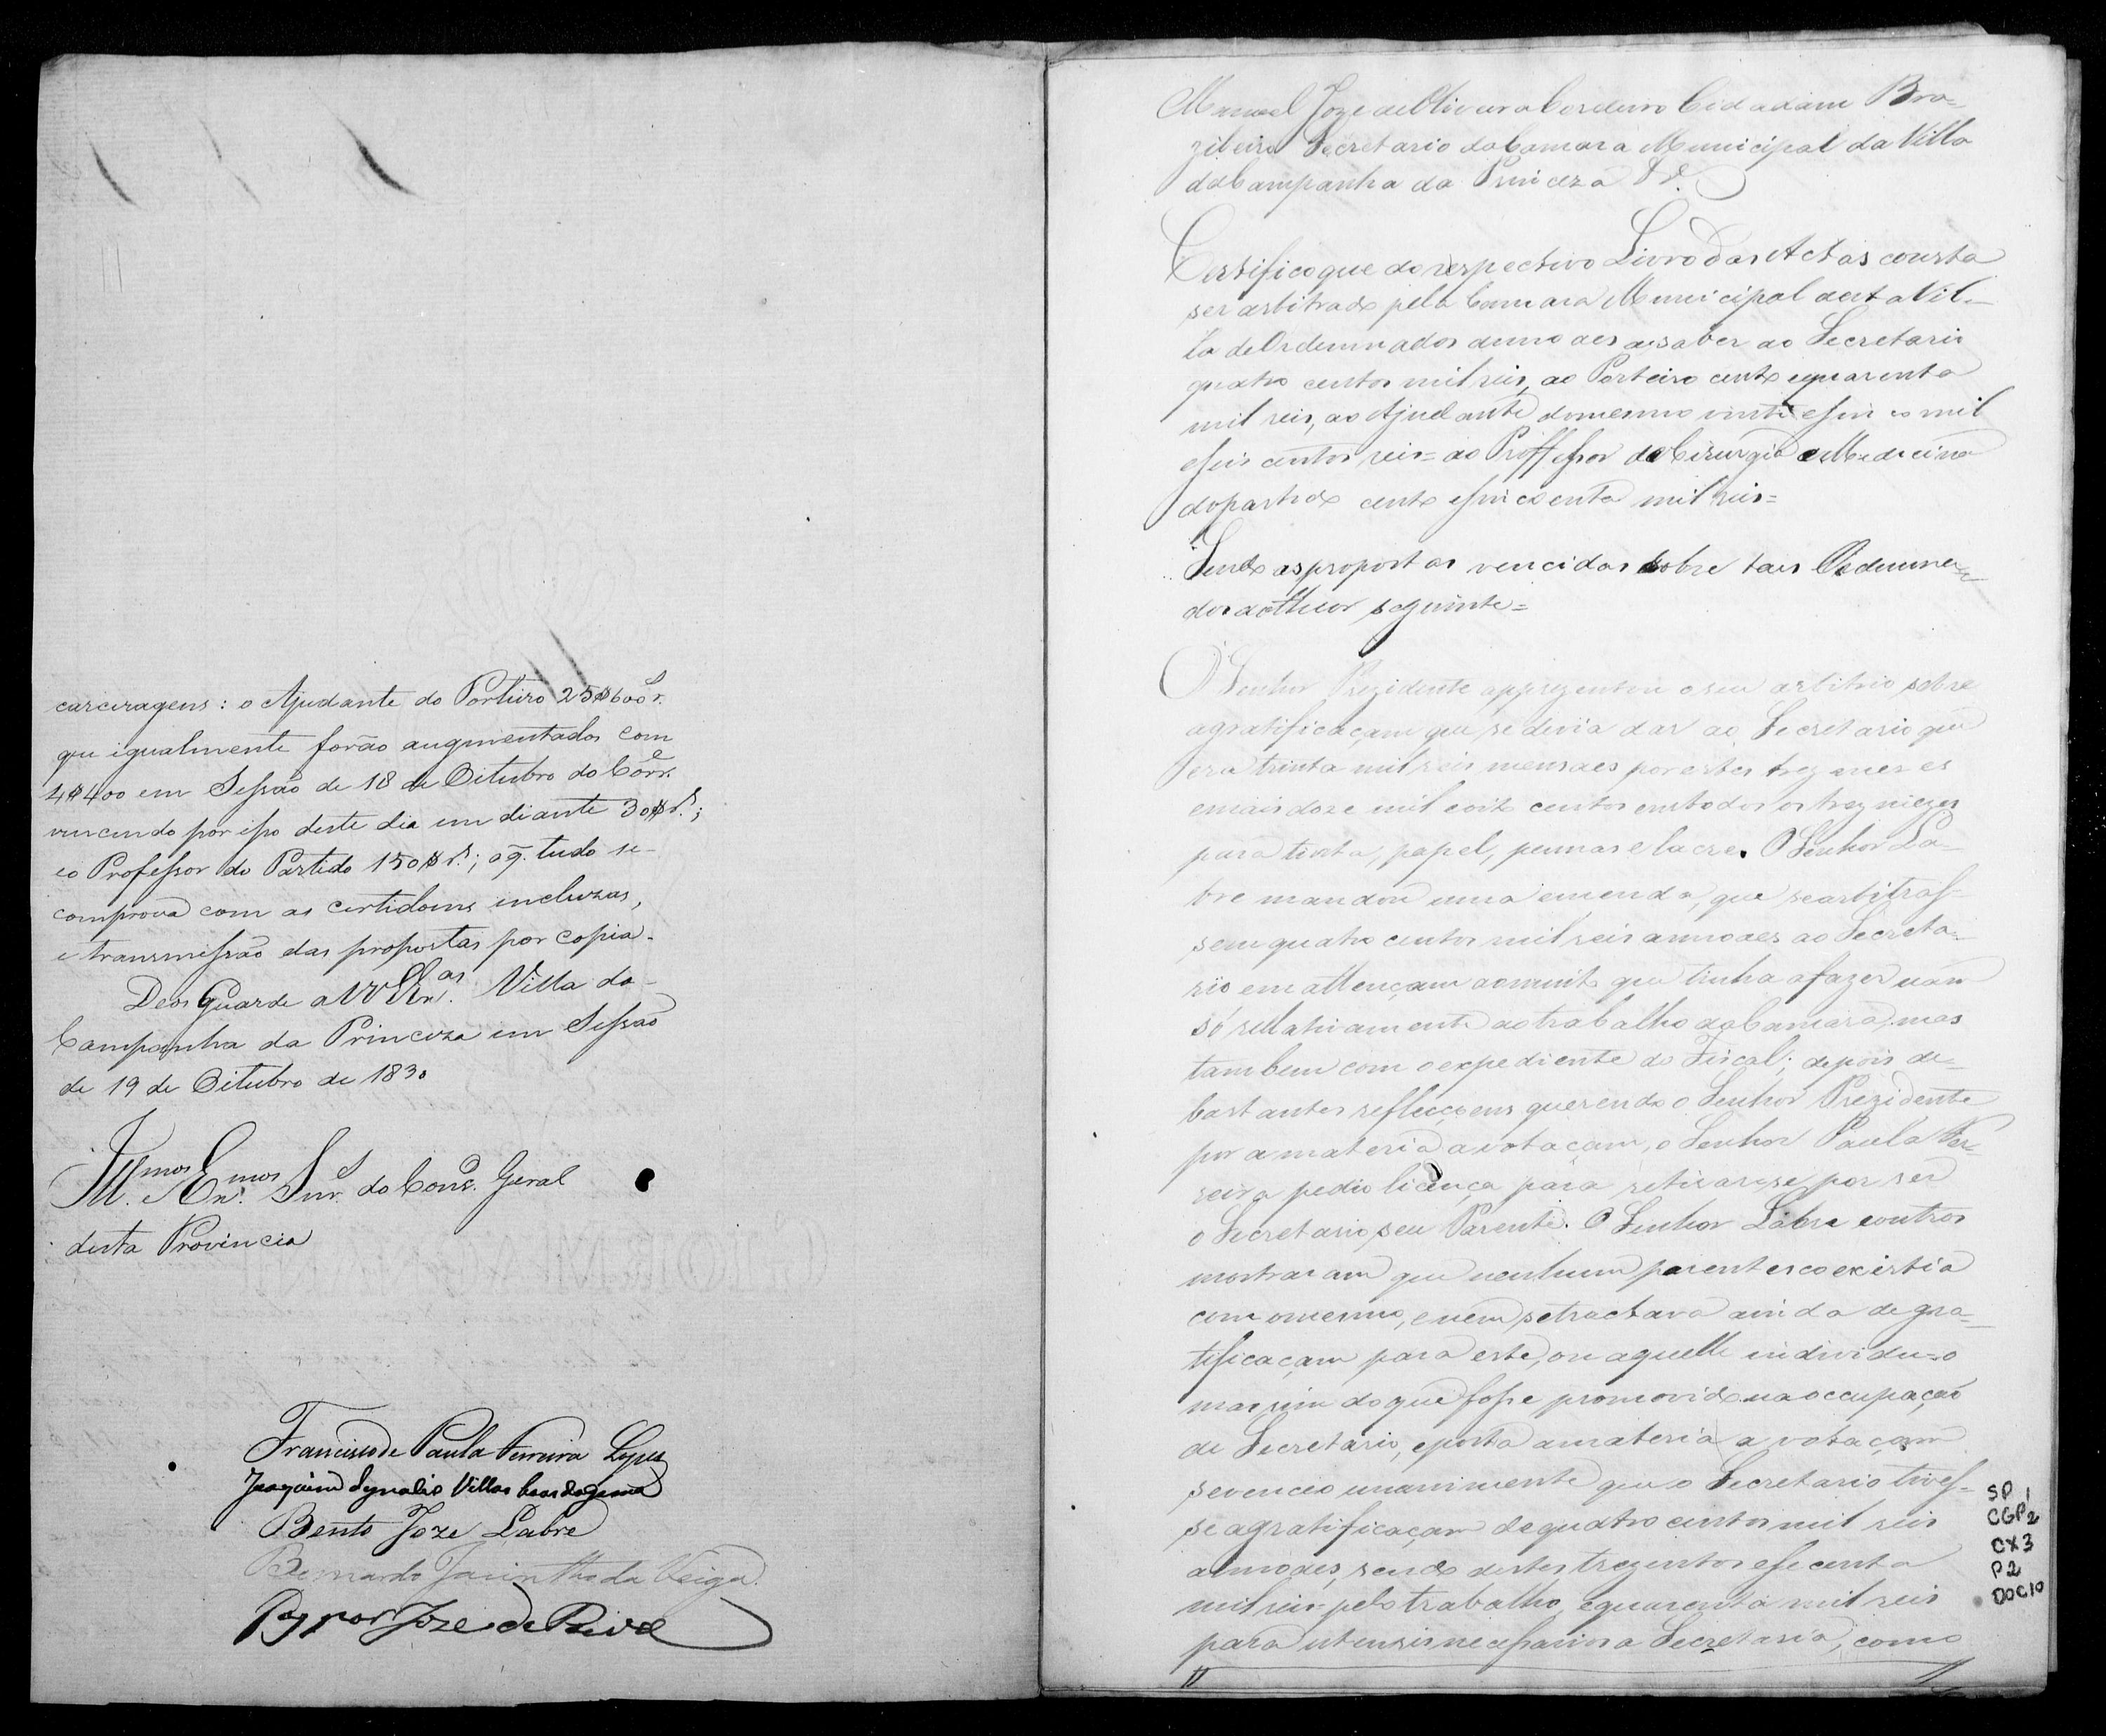 carceragens: o Ajudante do Porteiro 25$600 r.s
que igualmente forão augmentados com
4$400 em Sessão de 18 de Oitubro do Corr.e
vencendo por isso deste dia em diante 30$ r.s;
e o Professor do Partido 150$ r.s; o q. tudo se
comprova com as certidoens incluzas,
e transmissão das propostas por copia.
Deos Guarde a VV. Ex.as Villa da
Campanha da Princeza em Sessão
de 19 de Oitubro de 1830
Ill.mos e Ex.mos Snr.s do Cons.o Geral
desta Provincia
Francisco de Paula Ferreira Lopes
Joaquim Ignacio Villas boas da gama
Bento Joze Labre
Bernardo Jacintho da Veiga.
Joze de Paiva
Manoel Joze de Oliveira Cordeiro Cidadam Bra-
zileiro Secretario da Camara Municipal da Villa
da Campanha da Princeza
Certifico que do respectivo Livro das Actas consta
ser arbitrado pela Camara Municipal desta Vil-
la de Ordennados annoaes a saber ao Secretario
quatro centos mil reis, ao Porteiro cento e quarenta
mil reis, ao Ajudante do mesmo vinte e sinco mil
e seis centos reis = ao Proffessor de Cirurgia e Medicina
do partido cento e sincoenta mil reis =
Sendo as propostas vencidas sobre tais Ordenna-
dos do theor seguinte =
O Senhor Prezidente apprezentou o seu arbitrio sobre
a gratificaçam que se devia dar ao Secretario que
era trinta mil reis mensaes por estes trez mezes
e mais doze mil e oito centos em todos os trez mezes
para tinta, papel, pennas e lacre. O Senhor La-
bre mandou uma emenda, que se arbitras-
sem quatro centos mil reis annoaes ao Secreta-
rio em attençam ao muito que tinha a fazer nam
só rellativamente ao trabalho da Camara, mas
tambem com o expediente do Fiscal; depois de
bastantes reflecçoens querendo o Senhor Prezidente
por a materia a votaçam, o Senhor Paula Fer-
reira pedio licença para retirarse por ser
o Secretario seu Parente. O Senhor Labre e outros
mostraram que nenhum parentesco existia
com o mesmo, e nem se tractava ainda de gra-
tificaçam para este, ou aquelle individuo
mas sim do que fosse promovido na occupação
de Secretario, e posta a materia a votaçam
se venceo unanimente que o Secretario tives-
se a gratificaçam de quatro centos mil reis
annoaes, sendo destes trezentos e secenta
mil reis pelo trabalho, e quarenta mil reis
para utensis necessarios a Secretaria, como
SP 1
CGP2
CX3
P2
DOC10